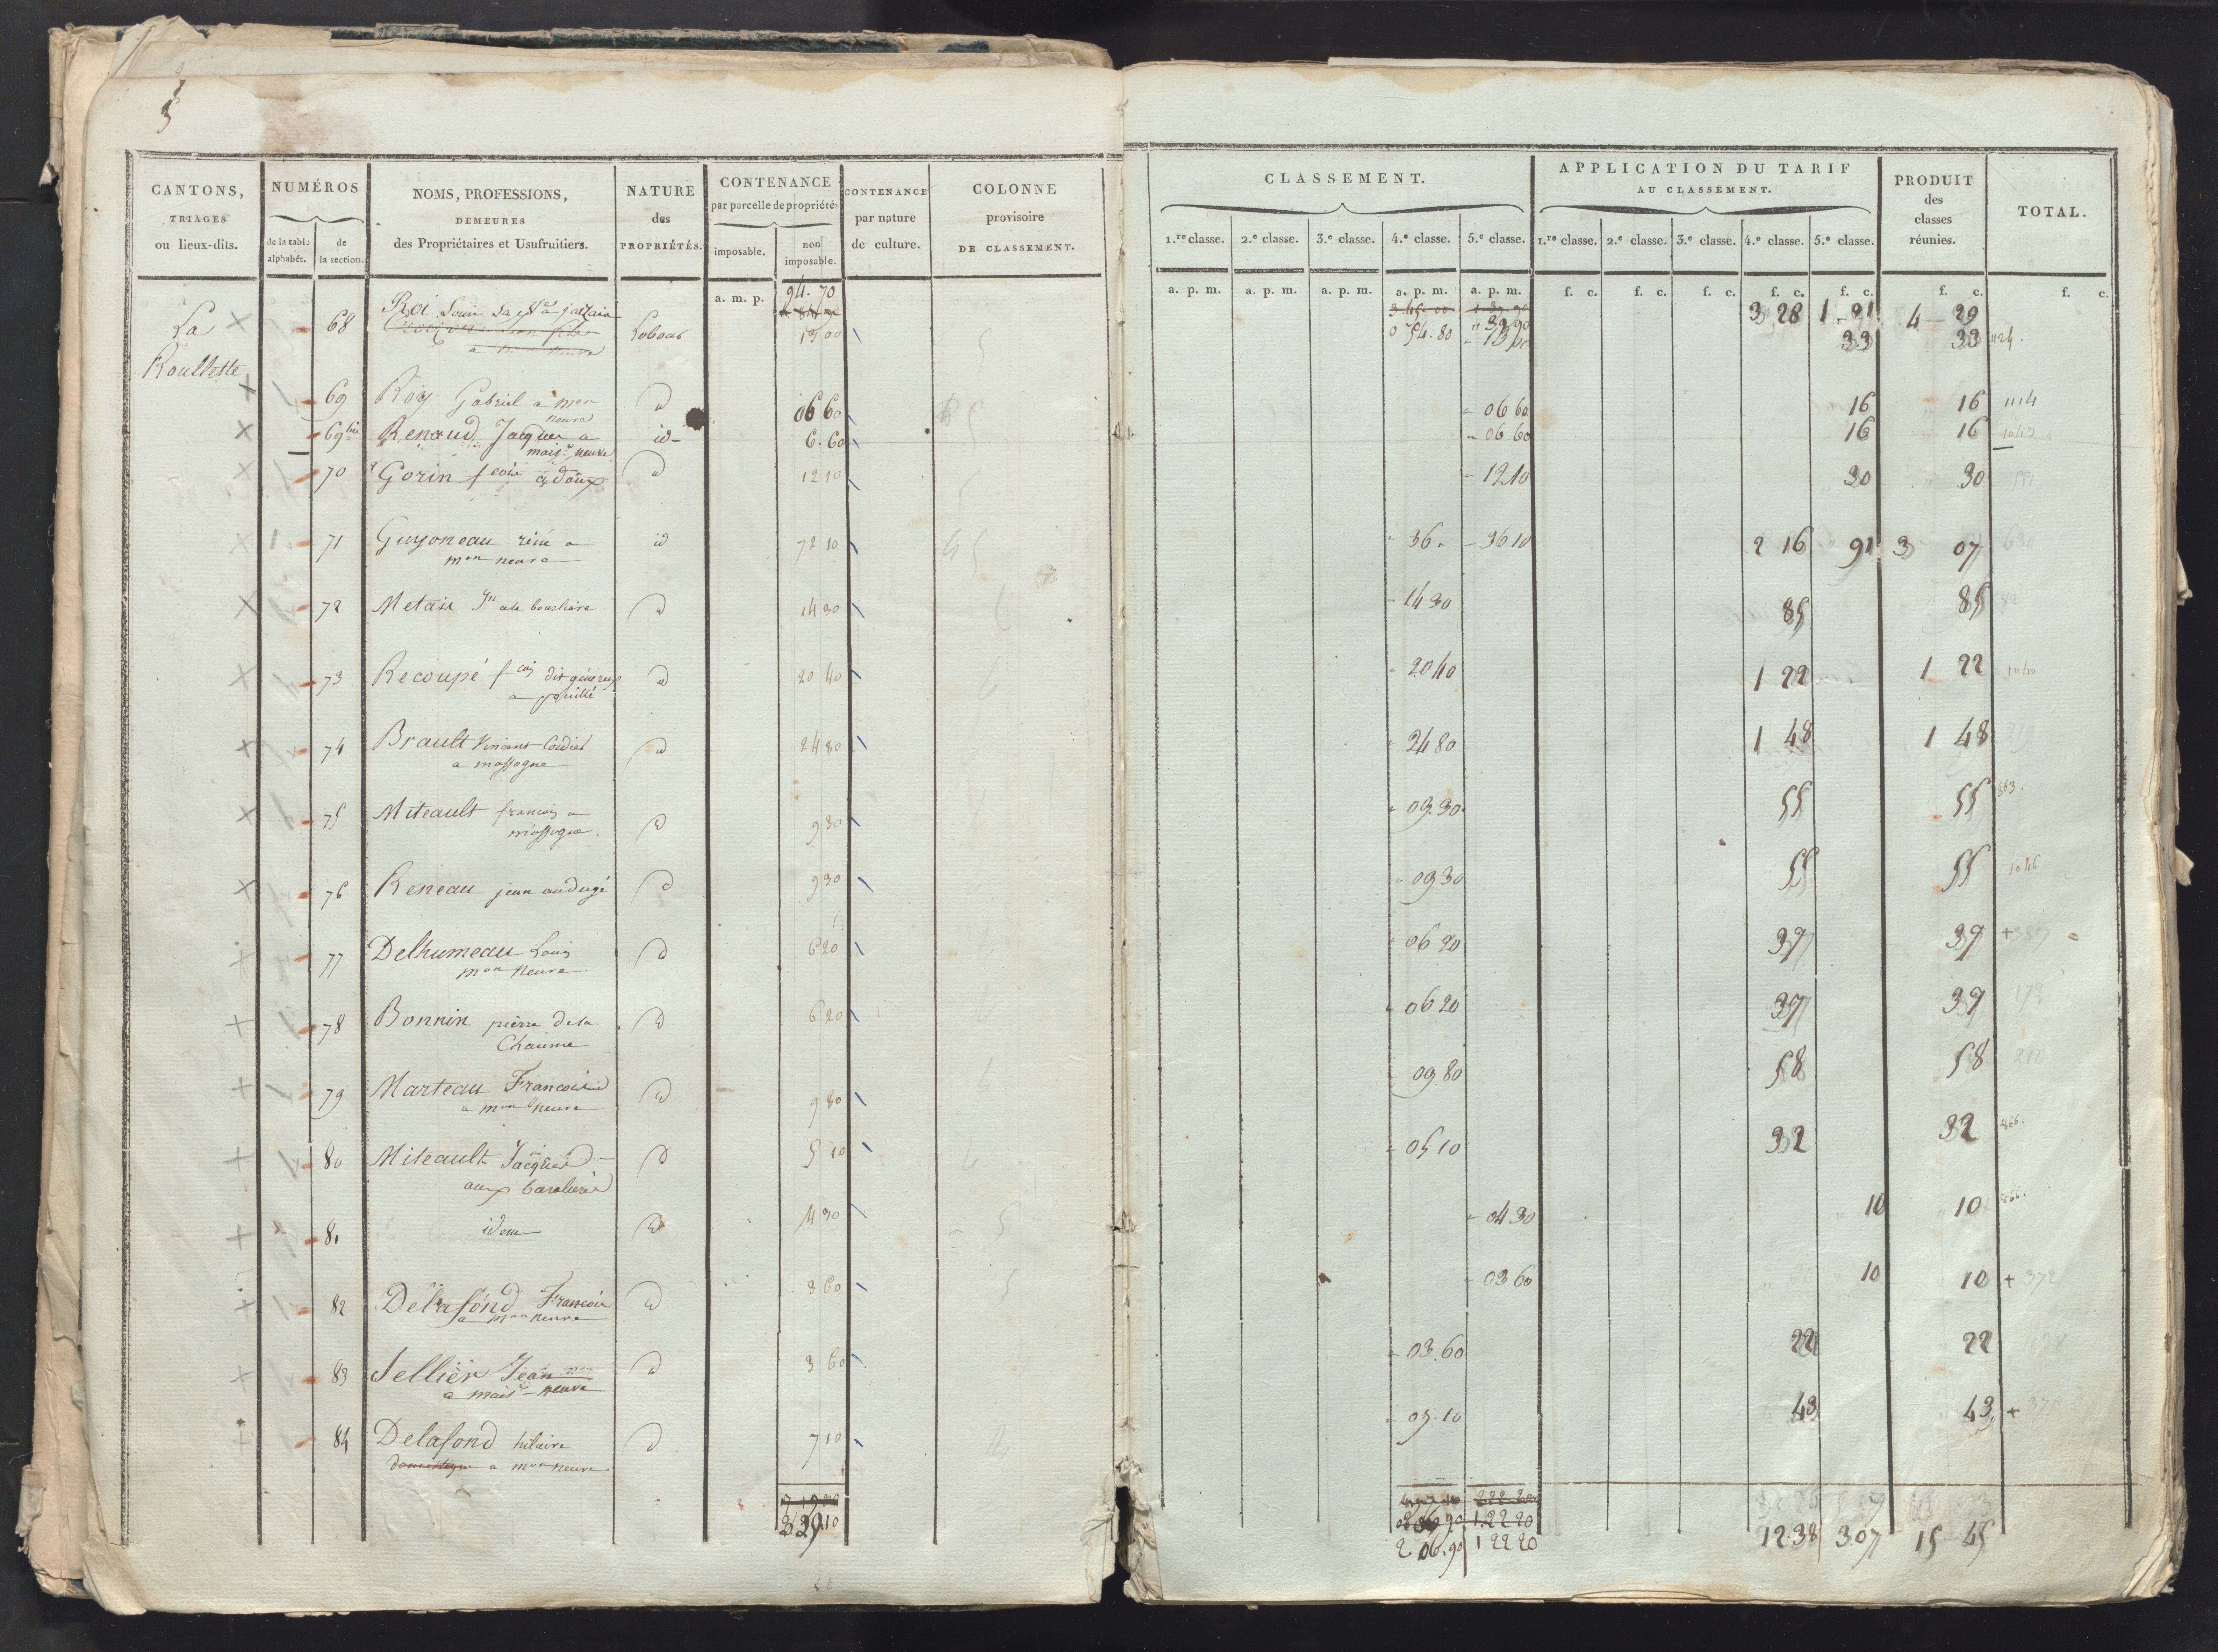 CANTONS,
TRIAGES
ou lieux-dits.
NUMÉROS
de la table alphabét.
de la section.
NOMS, PROFESSIONS,
DEMEURES
des Propriétaires et Usufruitiers.
NATURE
des
PROPRIÉTÉS.
CONTENANCE
par parcelle de propriétés
imposable.
non imposable.
CONTENANCE
par nature
de culture.
COLONNE
provisoire
DE CLASSEMENT.
CLASSEMENT.
1.re classe. 2.e classe. 3.e classe. 4.e classe. 5.e classe.
APPLICATION DU TARIF
AU CLASSEMENT.
1.re classe. 2.e classe. 3.e classe. 4.e classe. 5.e classe.
PRODUIT
des
classes
réunies.
TOTAL.
a. m. p.
a. p. m. a. p. m. a. p. m. a. p. m. a. p. m. f. c. f. c. f. c. f. c. f. c. f. c. f. c.
94.70 3 28 1 21 4 29
La 68 Roi Labour 15 00 0 54.80 39.90 33 33 1124.
Roullette
69 Roy Gabriel a mon 06 60 06 60 16 16 1114
neuve
69 bis Renaud Jacques a id 6.60 06 60 16 16 1043
mais neuve
70 Gorin fcois a doux 12 10 12 10 30 30
71 Guyoneau réné a id 72 10 36 36 10 2 16 91 3 07 630
mon neuve
72 Metais Jn 14 30 14 30 85 85
73 Recoupé fcois dit généreux 20 40 20 40 1 22 1 22 1040
a jouillé
74 Brault Vincent Cordier 24 80 24 80 1 48 1 48 219
a massogne
75 Miteault francois a 9 30 09.30 55 55 863.
massogne
76 Reneau jean audugé 9 30 09 30 55 55 1046
77 Delhumeau Louis 6 20 06 20 37 37
mon neuve
78 Bonnin pierre de la 6 20 06 20 37 37 172
Chaume
79 Marteau Francois 9 80 09 80 58 58
a mon neuve
80 Miteault Jacques 5 10 05 10 32 32 866.
aux
81 idem 4 30 04 30 10 10 866.
82 Delafond Francois 3 60 03 60 10 10 + 372
a mon neuve
83 Sellier Jean 3 60 03.60 22 22
a mais neuve
84 Delafond hilaire 7 10 07.10 43 43 +
domestique a mon neuve
329.10
2.06.90 1 22 20 12.38 3.07 15 45